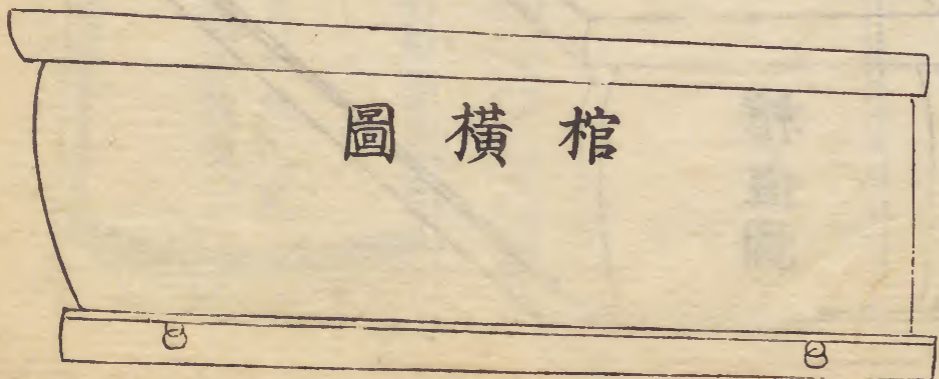 棺橫圖